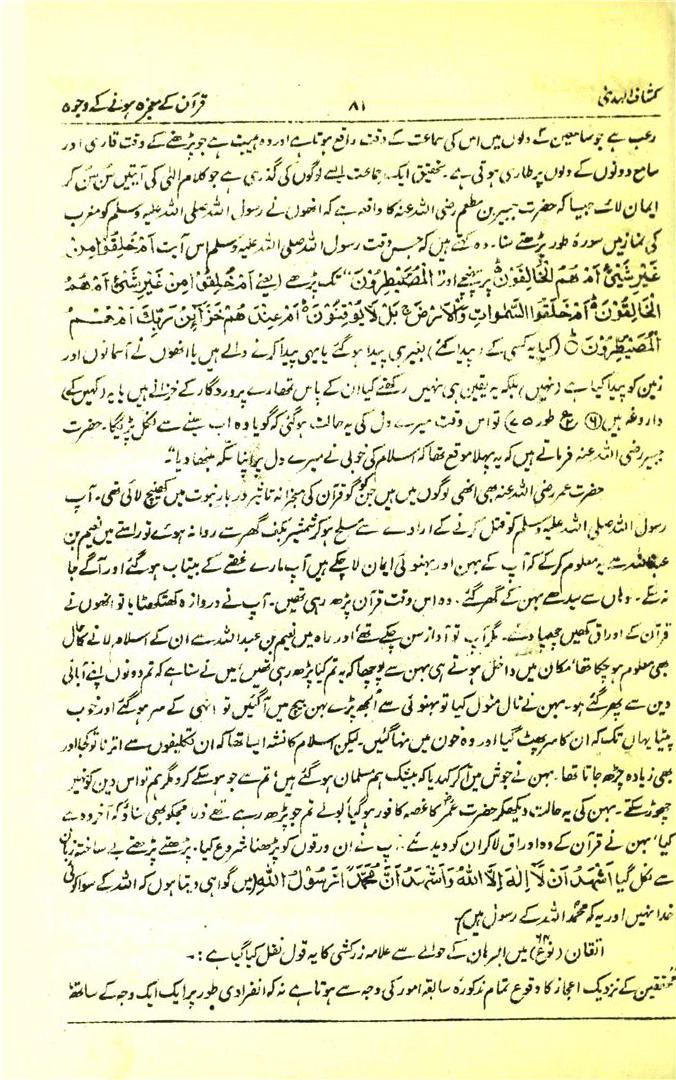 کشاف الہدیٰ ۸۱ قرآن کے معجزہ ہونے کے وجوہ
رعب ہے جو سامعین کے دلوں میں اس کی سماعت کے وقت واقع ہوتا ہے اور وہ ہیبت ہے جو پڑھنے کے وقت قاری اور
سامع دونوں کے دلوں پر طاری ہوتی ہے۔ تحقیق ایک جماعت ایسے لوگوں کی گذری ہے جو کلام الٰہی کی آیتیں سُن سُن کر
ایمان لائے جیسا کہ حضرت جبیر بن مطعم رضی اللہ عنہ کا واقعہ ہے کہ انھوں نے رسول اللہ صلی اللہ علیہ وسلم کو مغرب
کی نماز میں سورۂ طور پڑھتے سنا۔ وہ کہتے ہیں کہ جس وقت رسول اللہ صلی اللہ علیہ وسلم اس آیت اَمْ خُلِقُوْا مِنْ
غَيْرِ شَيْءٍ اَمْ هُمُ الْخَالِقُوْنَ پر پہنچے اور "الْمُصَيْطِرُوْنَ" تک پڑھے یعنی اَمْ خُلِقُوْا مِنْ غَيْرِ شَيْءٍ اَمْ هُمُ
الْخَالِقُوْنَ اَمْ خَلَقُوا السَّمٰوَاتِ وَالْاَرْضَ بَلْ لَا يُوْقِنُوْنَ اَمْ عِنْدَهُمْ خَزَآئِنُ رَبِّكَ اَمْ هُمُ
الْمُصَيْطِرُوْنَ (کیا یہ کسی کے (پیدا کئے) بغیر ہی پیدا ہو گئے یا یہی پیدا کرنے والے ہیں یا انھوں نے آسمانوں اور
زمین کو پیدا کیا ہے (نہیں) بلکہ یہ یقین ہی نہیں رکھتے کیا ان کے پاس تمھارے پروردگار کے خزانے ہیں یا یہ (کہیں کے)
داروغہ ہیں (۶ رع طور ۷۵) تو اس وقت میرے دل کی یہ حالت ہو گئی کہ گویا وہ اب سینے سے نکل پڑیگا۔ حضرت
جبیر رضی اللہ عنہ فرماتے ہیں کہ یہ پہلا موقع تھا کہ اسلام کی خوبی نے میرے دل پر اپنا سکہ بٹھا دیا"۔
حضرت عمر رضی اللہ عنہ بھی انھی لوگوں میں ہیں جن کو قرآن کی معجزانہ تاثیر دربار نبوت میں کھینچ لائی تھی۔ آپ
رسول اللہ صلی اللہ علیہ وسلم کو قتل کرنے کے ارادے سے مسلح ہو کر شمشیر بکف گھر سے روانہ ہوئے تو راستے میں نعیم بن
عبداللہ سے یہ معلوم کر کے کہ آپ کے بہن اور بہنوئی ایمان لا چکے ہیں آپ مارے غصے کے بیتاب ہو گئے اور آگے جا
نہ سکے۔ وہاں سے سیدھے بہن کے گھر گئے۔ وہ اس وقت قرآن پڑھ رہی تھیں۔ آپ نے دروازہ کھٹکھٹایا تو انھوں نے
قرآن کے اوراق کہیں چھپا دئے۔ مگر آپ تو آواز سن چکے تھے اور راہ میں نعیم بن عبداللہ سے ان کے اسلام لانے کا حال
بھی معلوم ہو چکا تھا مکان میں داخل ہوتے ہی بہن سے پوچھا کہ یہ تم کیا پڑھ رہی تھیں؟ میں نے سنا ہے کہ تم دونوں اپنے آبائی
دین سے پھر گئے ہو۔ بہن نے ٹال مٹول کیا تو بہنوئی سے اُلجھ پڑے بہن بیچ میں آ گئیں تو انہی کے سر ہو گئے اور خوب
پیٹا یہاں تک کہ ان کا سر پھٹ گیا اور وہ خون میں نہا گئیں۔ لیکن اسلام کا نشہ ایسا تھا کہ ان تکلیفوں سے اترنا تو کجا اور
بھی زیادہ چڑھ جاتا تھا۔ بہن نے جوش میں آ کر کہہ دیا کہ بیشک ہم مسلمان ہو گئے ہیں تم سے جو ہو سکے کرو مگر ہم تو اس دین کو نہیں
چھوڑ سکتے۔ بہن کی یہ حالت دیکھ کر حضرت عمرؓ کا غصہ کافور ہو گیا بولے تم جو پڑھ رہے تھے ذرا مجھکو بھی سناؤ کہ آخر وہ ہے
کیا؟ بہن نے قرآن کے وہ اوراق لا کر ان کو دیدئے۔ آپ نے ان ورقوں کو پڑھنا شروع کیا۔ پڑھتے پڑھتے بے ساختہ زبان
سے نکل گیا اَشْهَدُ اَنْ لَّا اِلٰهَ اِلَّا اللهُ وَاَشْهَدُ اَنَّ مُحَمَّدًا رَّسُوْلُ اللهِ (میں گواہی دیتا ہوں کہ اللہ کے سوا کوئی
خدا نہیں اور یہ کہ محمد اللہ کے رسول ہیں)۔
اتقان (نوع ۶۴) میں البرہان کے حوالے سے علامہ زرکشی کا یہ قول نقل کیا گیا ہے:۔
محققین کے نزدیک اعجاز کا وقوع تمام مذکورہ سابقہ امور کی وجہ سے ہوتا ہے نہ کہ انفرادی طور پر ایک ایک وجہ کے ساتھ